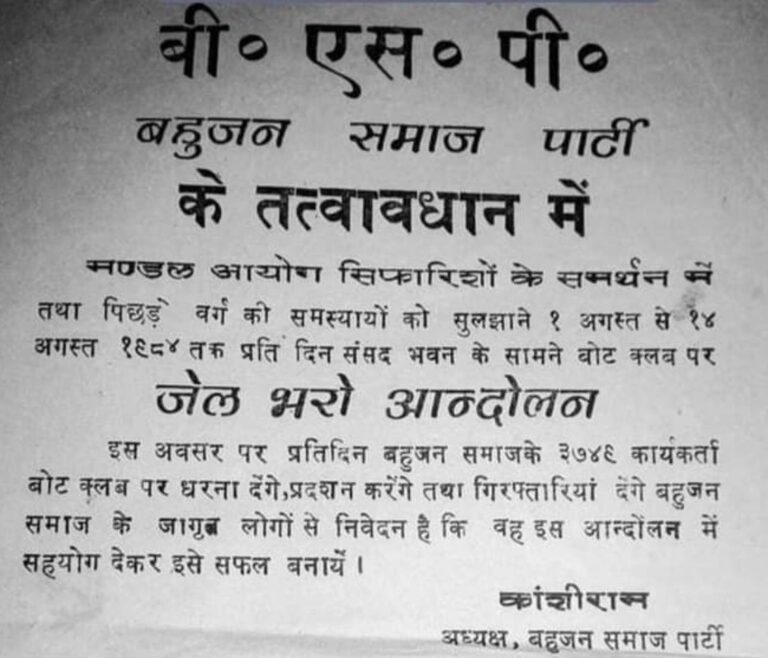 बी० एस० पी०
बहुजन समाज पार्टी
के तत्वावधान में
मण्डल आयोग सिफारिशों के समर्थन में
तथा पिछड़े वर्ग की समस्यायों को सुलझाने १ अगस्त से १४
अगस्त १९८४ तक प्रति दिन संसद भवन के सामने बोट क्लब पर
जेल भरो आन्दोलन
इस अवसर पर प्रतिदिन बहुजन समाजके ३७४९ कार्यकर्ता
बोट क्लब पर धरना देंगे,प्रदशन करेंगे तथा गिरफ्तारियां देंगे बहुजन
समाज के जागृत लोगों से निवेदन है कि वह इस आन्दोंलन में
सहयोग देकर इसे सफल बनायें ।
कांशीराम
अध्यक्ष, बहुजन समाज पार्टी